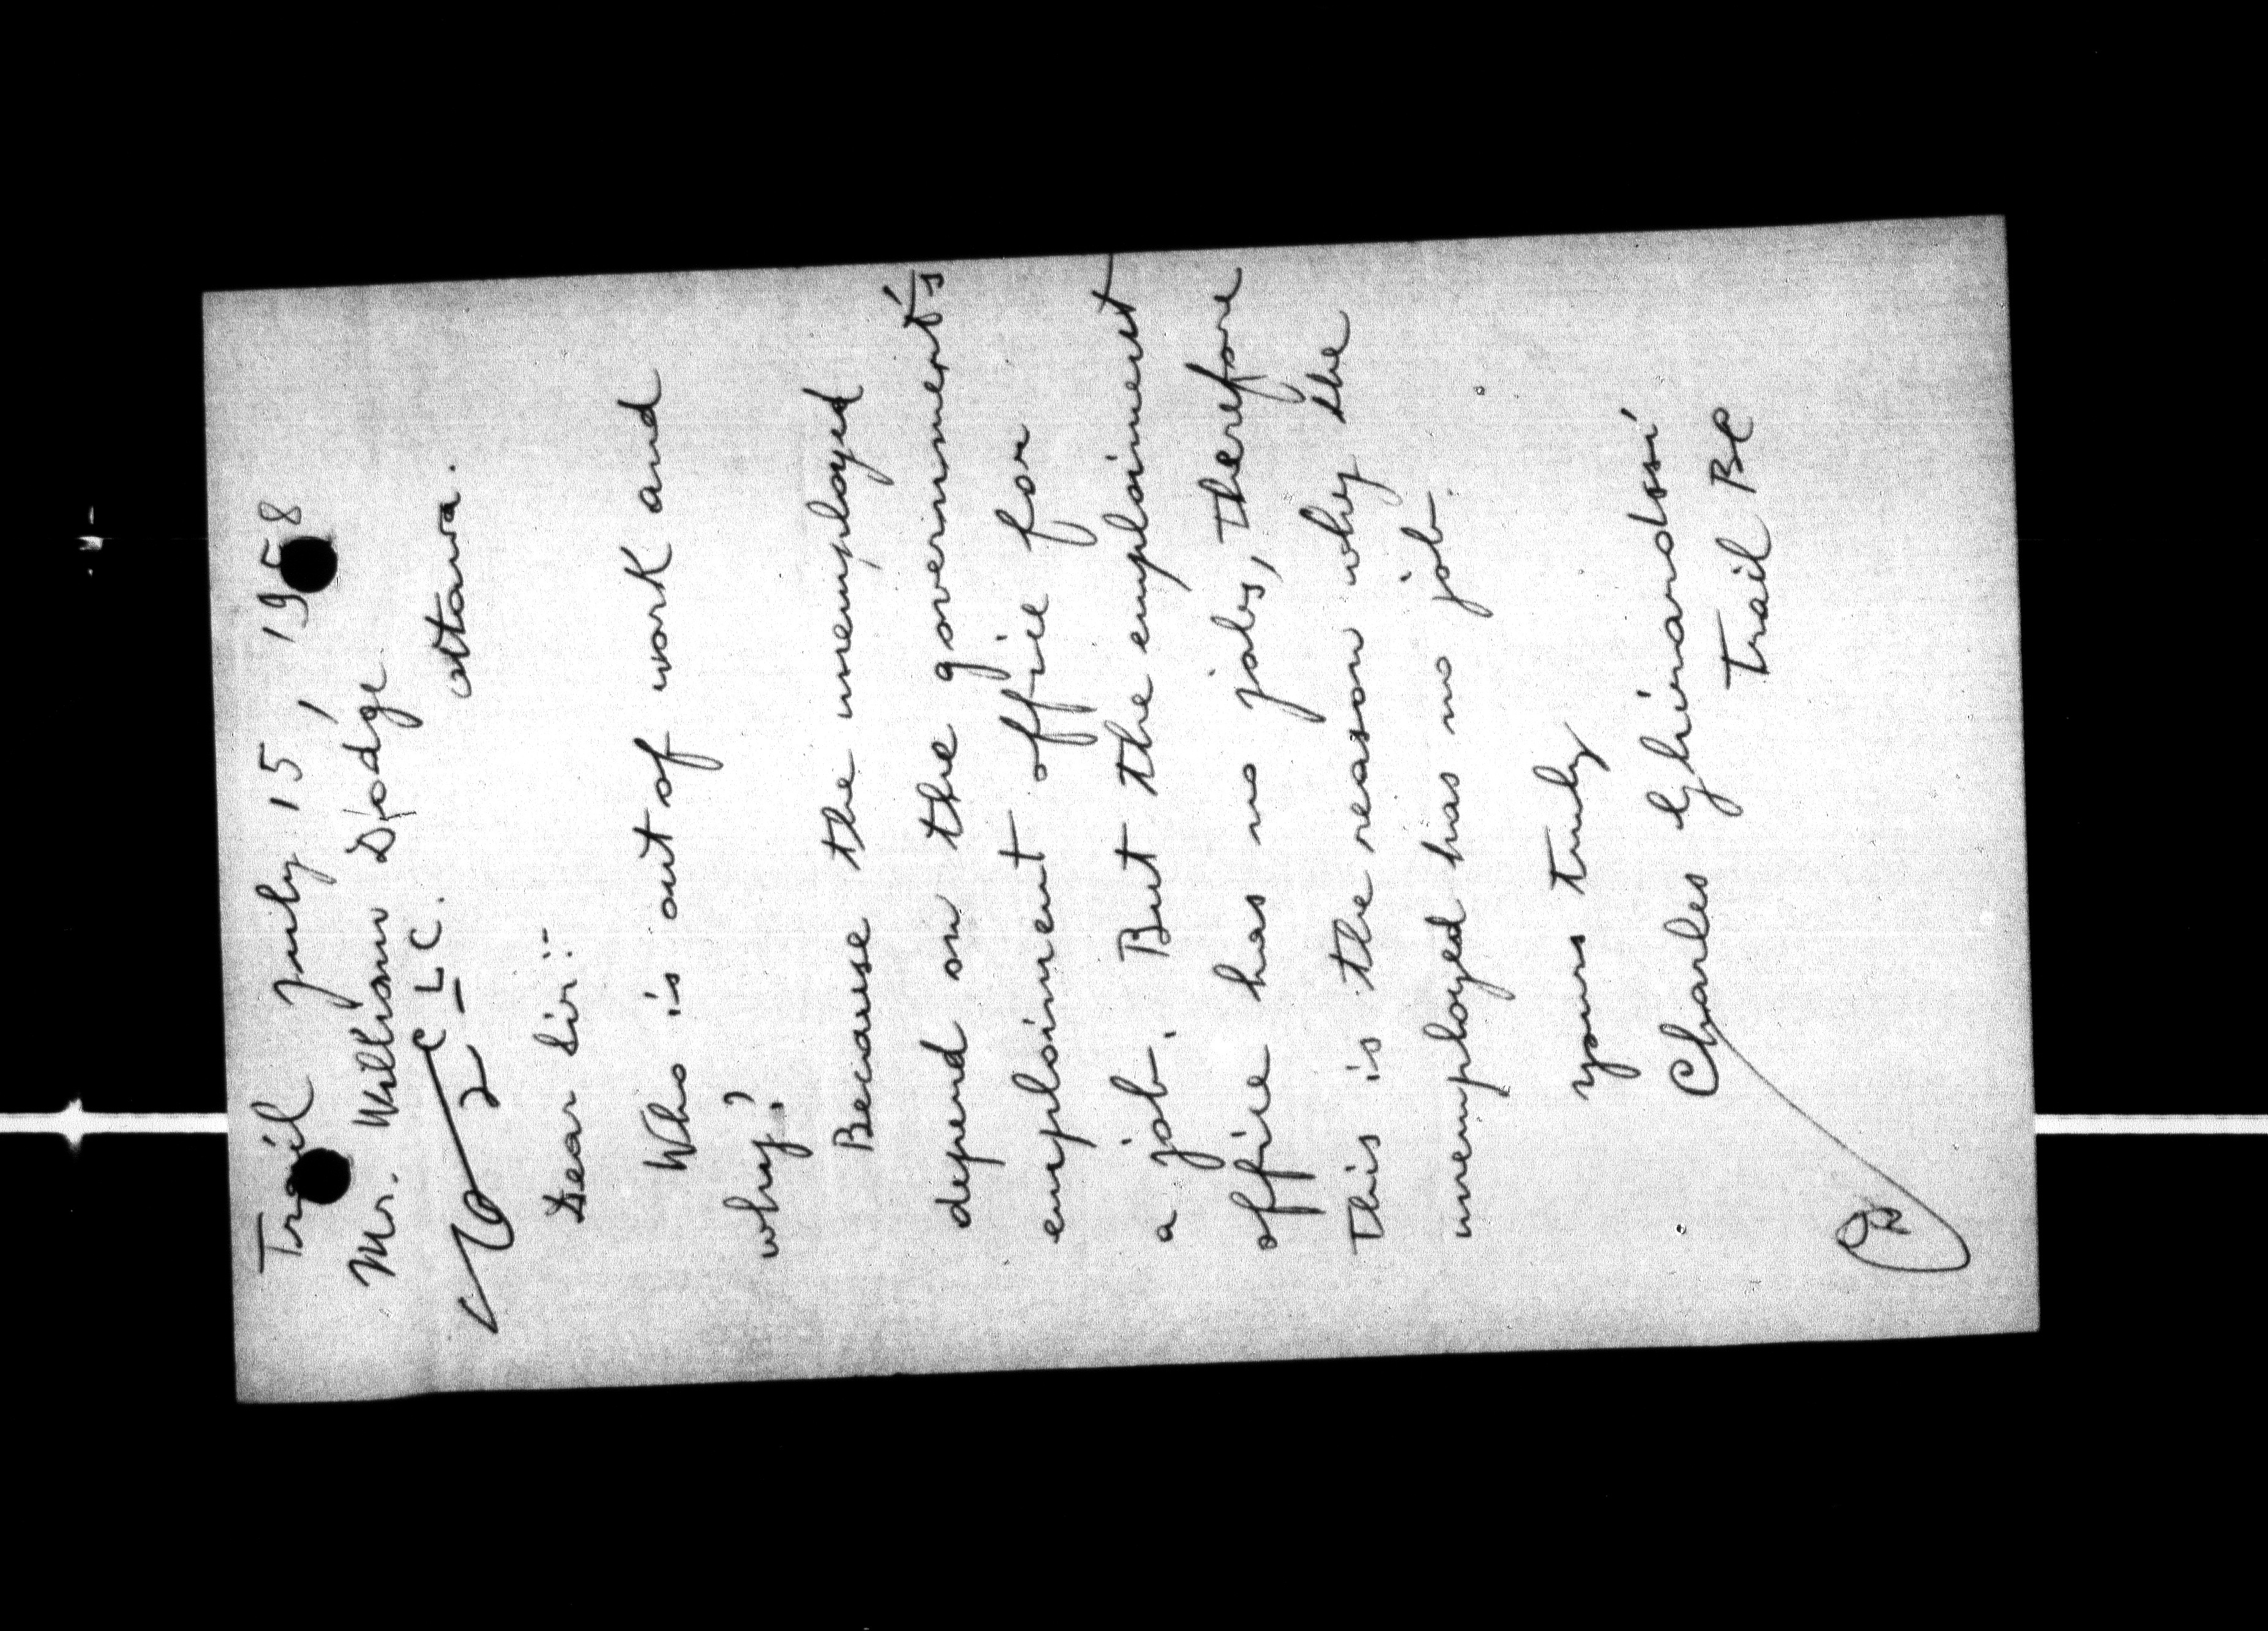 Trail July 15, 1958
Mr. William Dodge
C L C. ottawa.
Dear Sir:-
Who is out of work and
why?
Because the unemployed
depend on the government's
emploiment office for
a job. But the emploiment
office has no jobs, therefore
This is the reason why the
unemployed has no job.
yours truly
Charles Ghirardosi
Trail BC